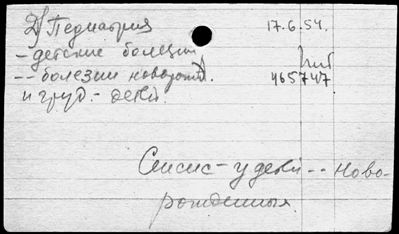 Педиатрия 17.6.54.
- детские болезни
-- болезни новорожд.
465747
и груд. - детей.
Сепсис - у детей -- Ново-
рожденных